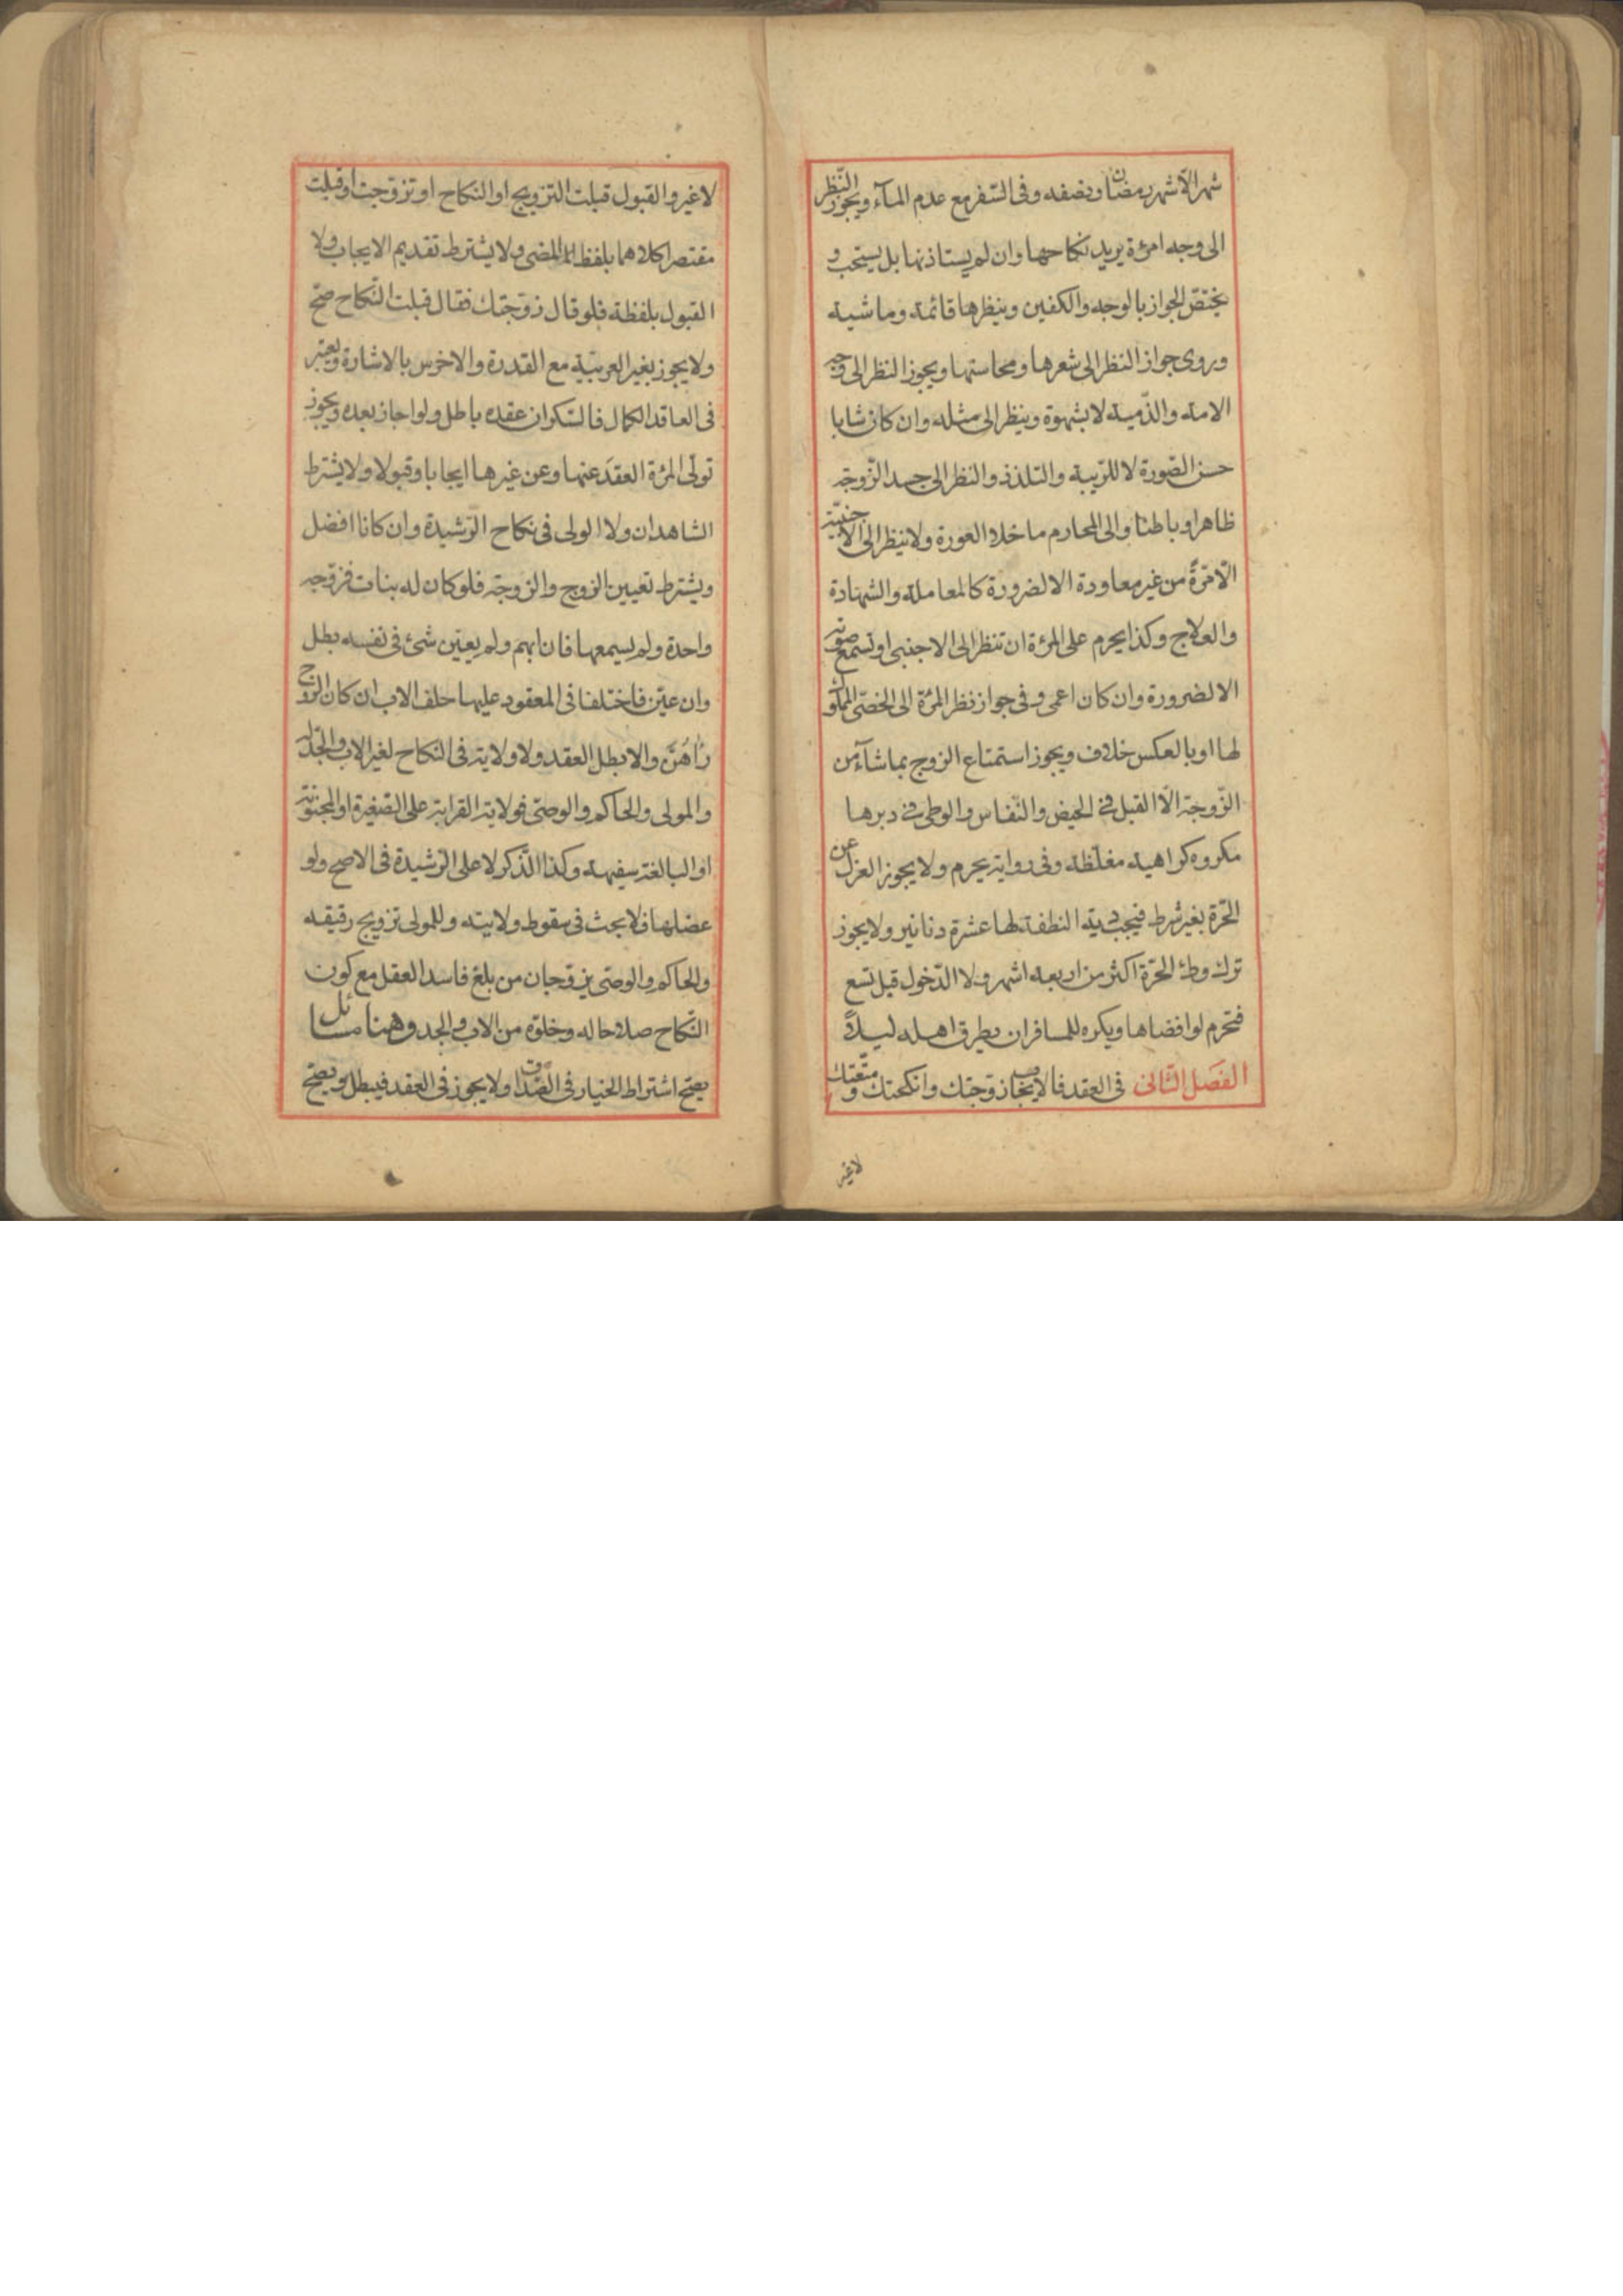 شهر الّا شهر رمضان ونصفه وفى السّفر مع عدم المآء ويجوز النّظر
الى وجه امرٔة يريد نكاحها وان لم يستاذنها بل يستحب و
يختصّ الجواز بالوجه والكفين وينظرها قائمة وماشية
وروى جواز النظر الى شعرها ومحاسنها ويجوز النظر الى وجه
الامة والذّمية لا بشهوة وينظر الى مثله وان كان شابا
حسن الصّورة لا للرّيبة والتلذذ والنظر الى جسد الزّوجة
ظاهرا وباطنا والى المحارم ما خلا العورة ولا ينظر الى الاجنبيّة
الّا مرّةً من غير معاودة الا لضرورة كالمعاملة والشهادة
والعلاج وكذا يحرم على المرٔة ان تنظر الى الاجنبى او تسمع صوته
الا لضرورة وان كان اعمى وفى جواز نظر المرٔة الى الخصّى المملوك
لها او بالعكس خلاف ويجوز استمتاع الزوج بما شآء من
الزّوجة الّا القبل فى الحيض والنّفاس والوطى فى دبرها
مكروه كراهية مغلّظة وفى رواية يحرم ولا يجوز العزل عن
الحرّة بغير شرط فيجب دية النطفة لها عشرة دنانير ولا يجوز
ترك وطئ الحرّة اكثر من اربعة اشهر ولا الدّخول قبل تسع
فتحرم لو افضاها ويكره للمسافر ان يطرق اهله ليلاً
الفصَل الثانى فى العقد فالايجاب زوّجتك وانكحتك ومتّعتك
لا غير
لا غير والقبول قبلت التزويج او النكاح او تزوّجت او قبلت
مقتصرا كلاهما بلفظ المضى ولا يشترط تقديم الايجاب ولا
القبول بلفظة فلو قال زوّجتك فقال قبلت النّكاح صحّ
ولا يجوز بغير العربيّة مع القدرة والاخرس بالاشارة ويعتبر
فى العاقد الكمال فالسّكران عقده باطل ولو اجاز بعده ويجوز
تولّى المرٔة العقدَ عنها وعن غيرها ايجابا وقبولا ولا يشترط
الشاهدان ولا الولى فى نكاح الرّشيدة وان كانا افضل
ويشترط تعيين الزوج والزوجة فلو كان له بنات فزوّجه
واحدة ولم يسمعها فان ابهم ولم يعيّن شئ فى نفسه بطل
وان عيّن فاختلفا فى المعقود عليها حلف الاب ان كان الزوج
رٰاهُنَّ والا بطل العقد ولا ولاية فى النكاح لغير الاب والجدّ له
والمولى والحاكم والوصّى فولاية القرابة على الصّغيرة او المجنونة
او البالغة سفيهة وكذا الذّكر لا على الرّشيدة فى الاصح ولو
عضلها فلا بحث فى سقوط ولايته وللمولى تزويج رقيقه
والحاكم والوصّى يزوّجان من بلغ فاسد العقل مع كون
النّكاح صلاحا له وخلوّه من الاب والجد وهنا مسائل
يصحّ اشتراط الخيار فى الصّداق ولا يجوز فى العقد فيبطل ويصحّ